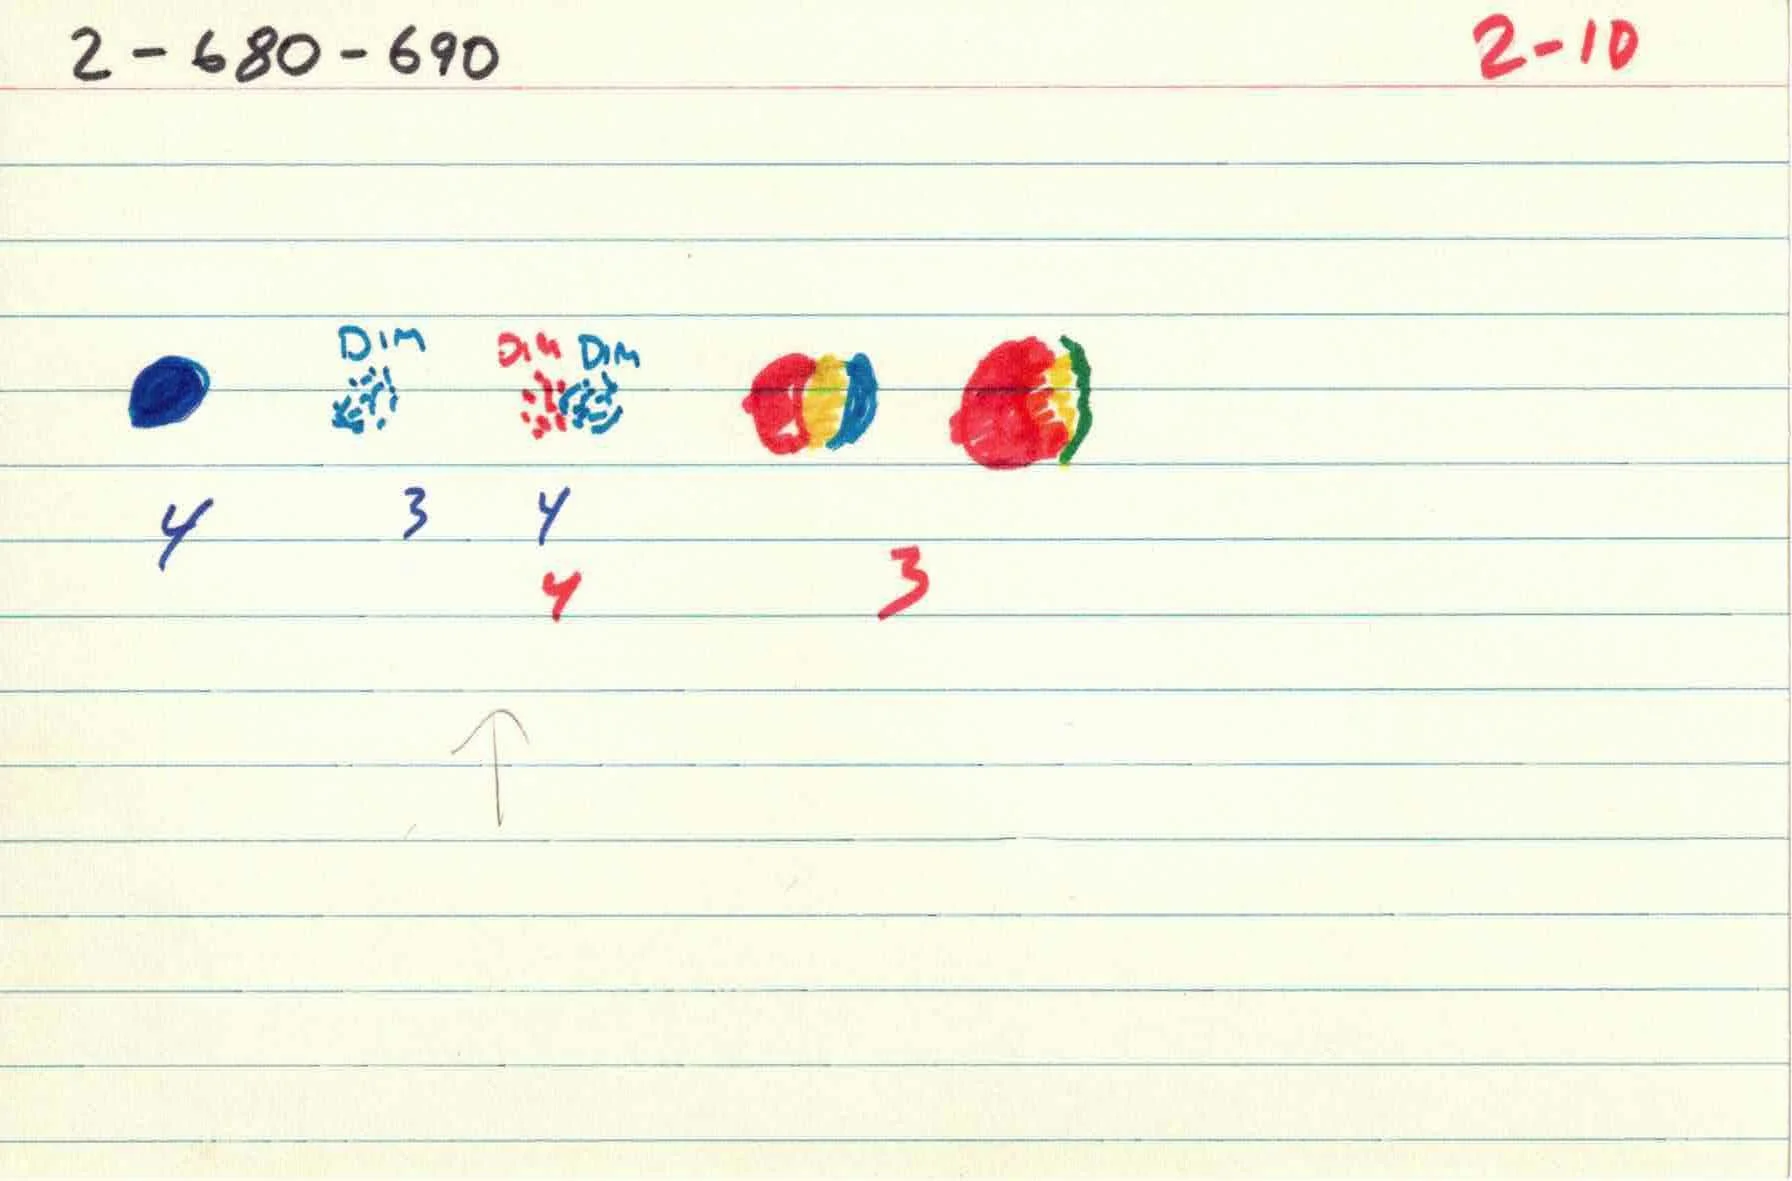 2-680-690 2-10
DIM DIM DIM
4 3 4
4 3